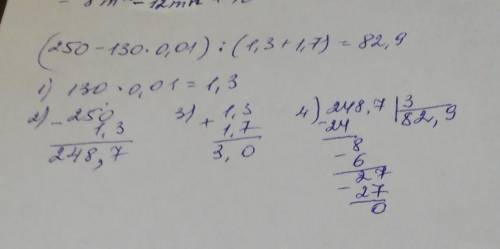 - 8m² - 12mn +
(250-130·0,01):(1,3+1,7)=82,9
1) 130·0,01=1,3
2) -250 3) +1,3 4) 248,7 | 3
1,3 1,7 -24 82,9
248,7 3,0 8
-6
27
-27
0